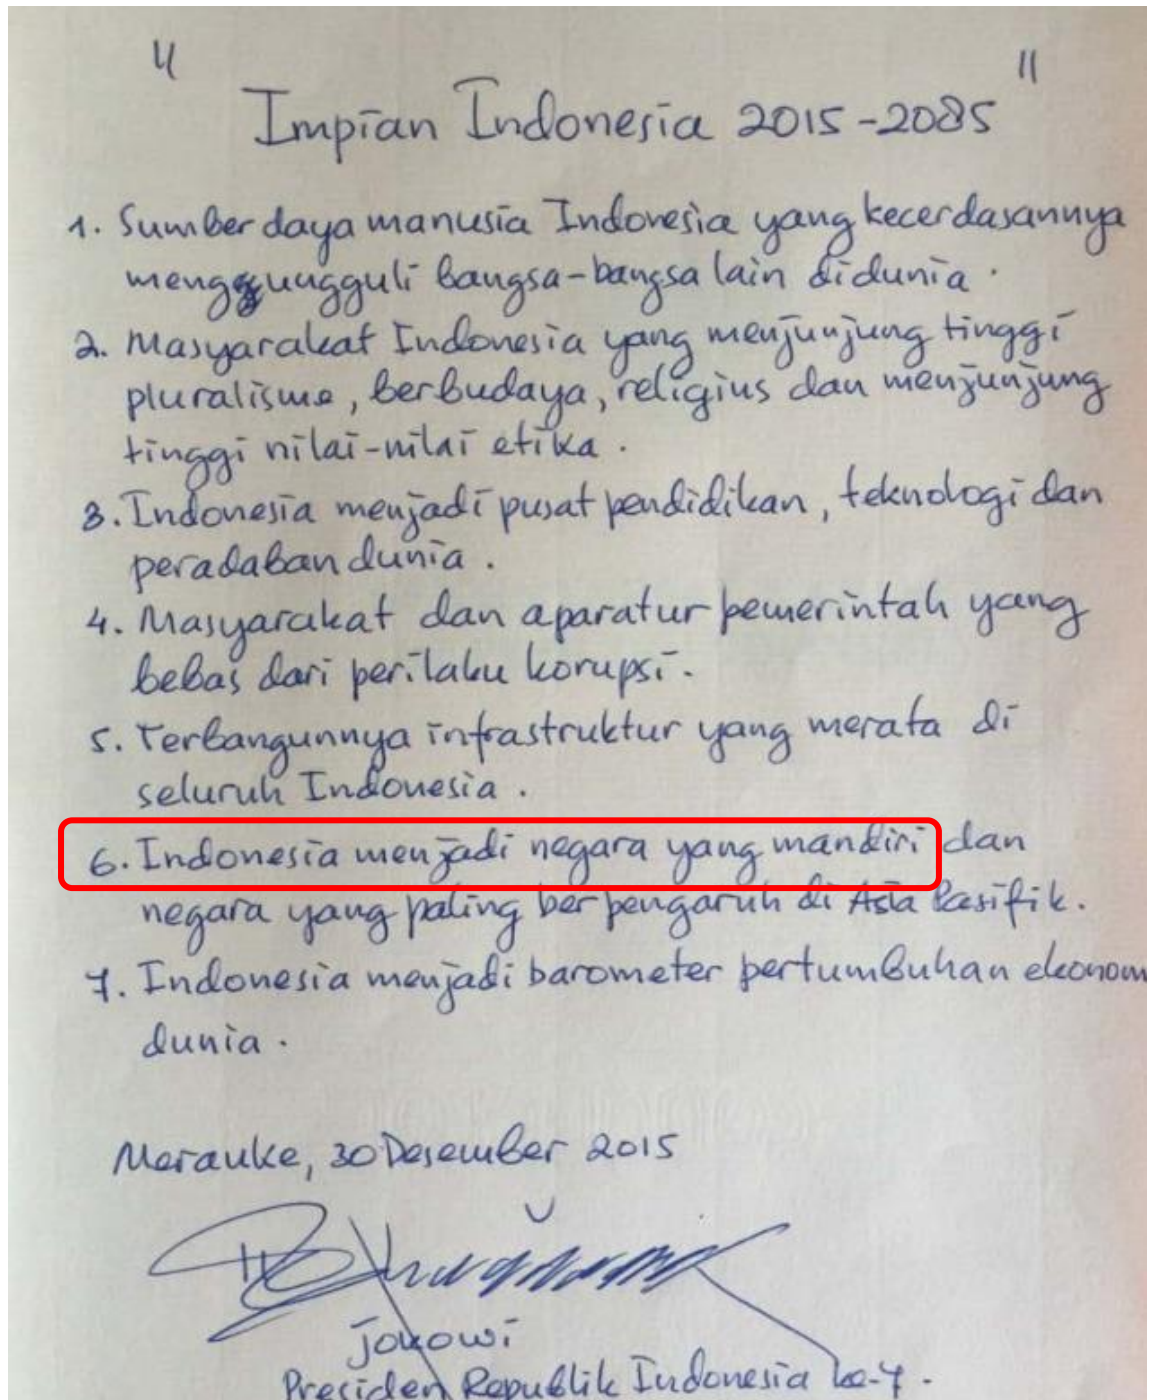 "
"
Impian Indonesia 2015-2085
1. Sumber daya manusia Indonesia yang kecerdasannya
mengungguli bangsa-bangsa lain didunia.
2. Masyarakat Indonesia yang menjunjung tinggi
pluralisme, berbudaya, religius dan menjunjung
tinggi nilai-nilai etika.
3. Indonesia menjadi pusat pendidikan, teknologi dan
peradaban dunia.
4. Masyarakat dan aparatur pemerintah yang
bebas dari perilaku korupsi.
5. Terbangunnya infrastruktur yang merata di
seluruh Indonesia.
6. Indonesia menjadi negara yang mandiri dan
negara yang paling berpengaruh di Asia Pasifik.
7. Indonesia menjadi barometer pertumbuhan ekonom
dunia.
Merauke, 30 Desember 2015
Jokowi
Presiden Republik Indonesia ke-7.